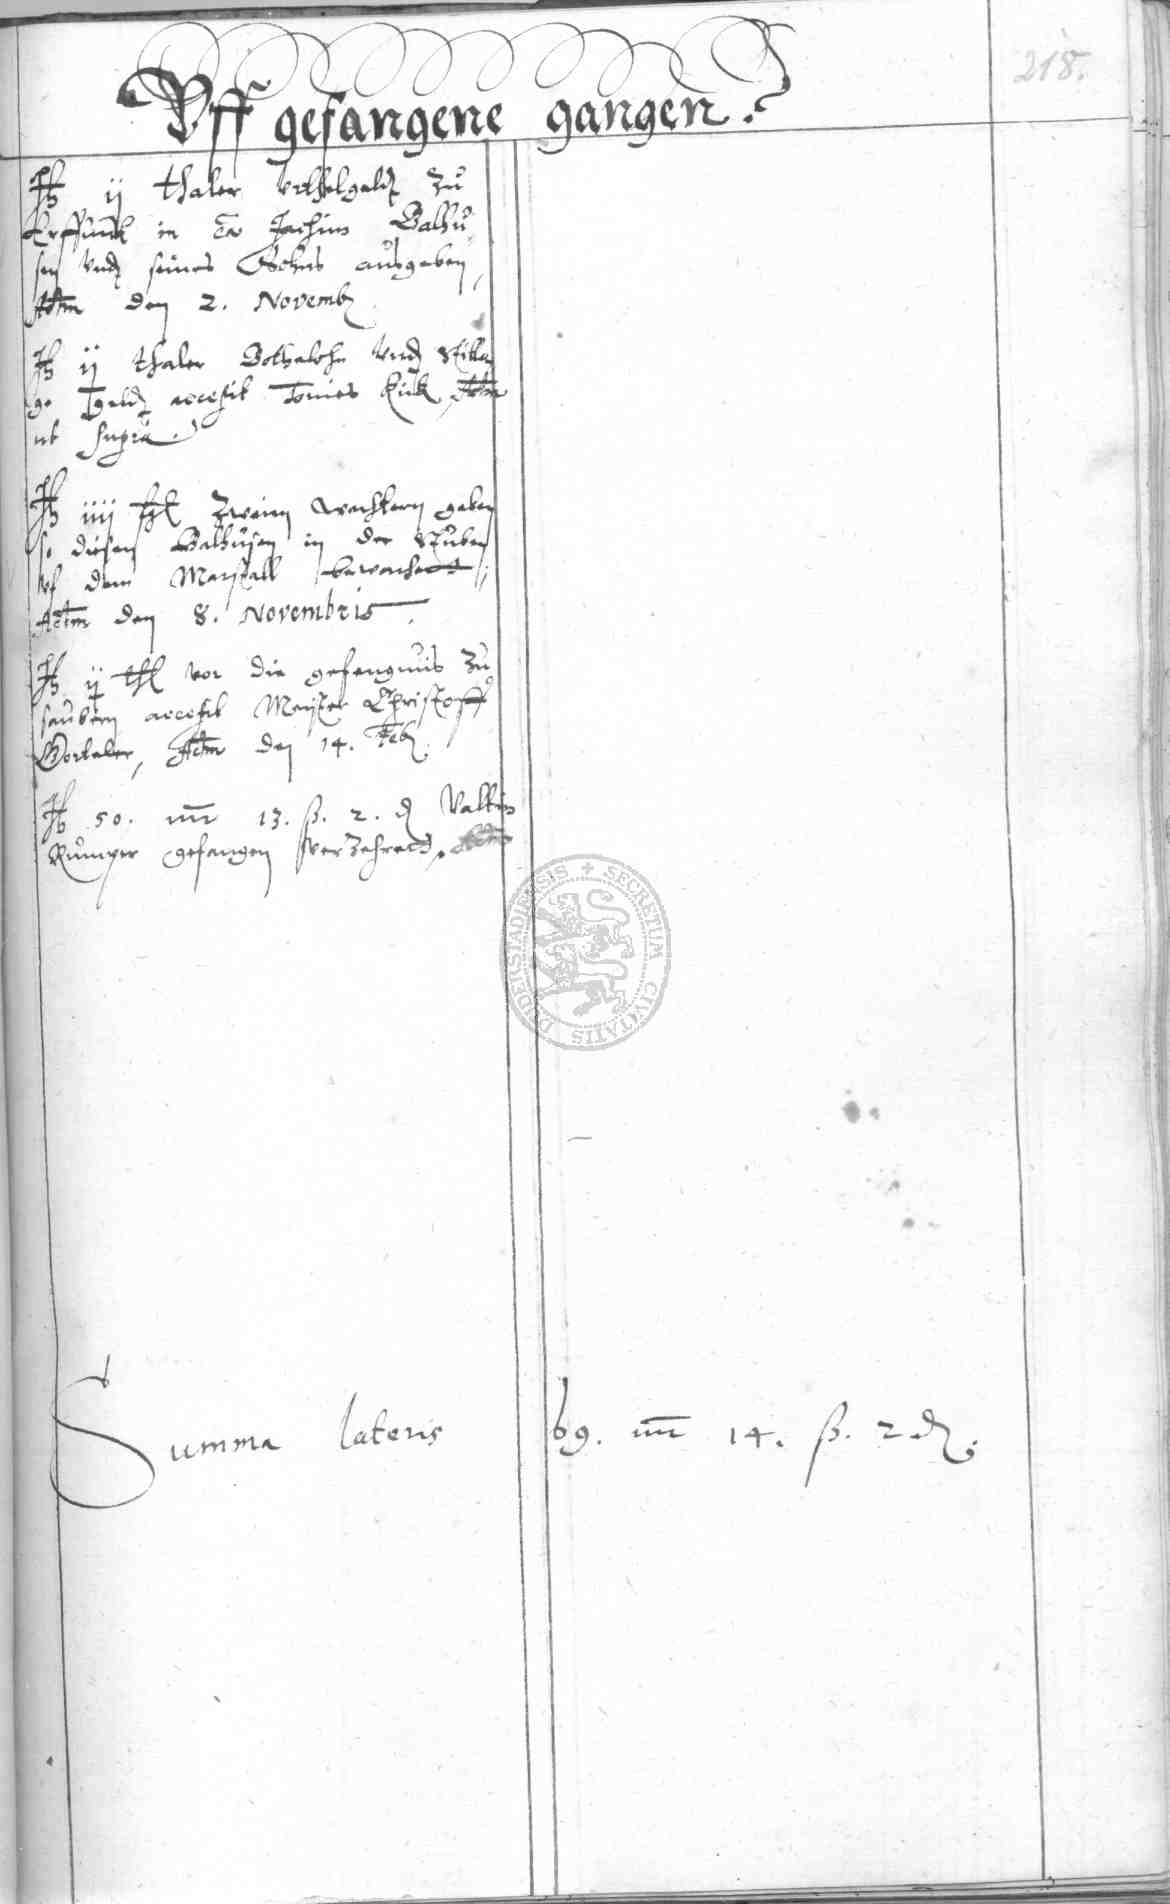 218.
Vff gefangene gangen.
It ij thaler vrthelgeldt zu
Erffurdt in ca Jachim Balhu
sen vnd seines Sohns ausgeben,
Actm den 2. Novemb
It ij thaler Bothelohn vnd
ge geldt accepit Tonies Kück, Actm
ut supra.
It iiij thl zweien wechtern geben
so diesen Balhusen in der Stuben
vf dem Marstall bewachett,
Actm den 8. Novembris
It ij thl vor die gefengnus zu
saubern accepit Meister Christoff
Actm den 14. Feb.
It 50. mr 13. ß. 2. d Valtin
Kumper gefangen verzehrett, Actm
Summa lateris 69. mr 14. ß. 2 d.
SECRETUM CIVITATIS DUDERSTADIENSIS